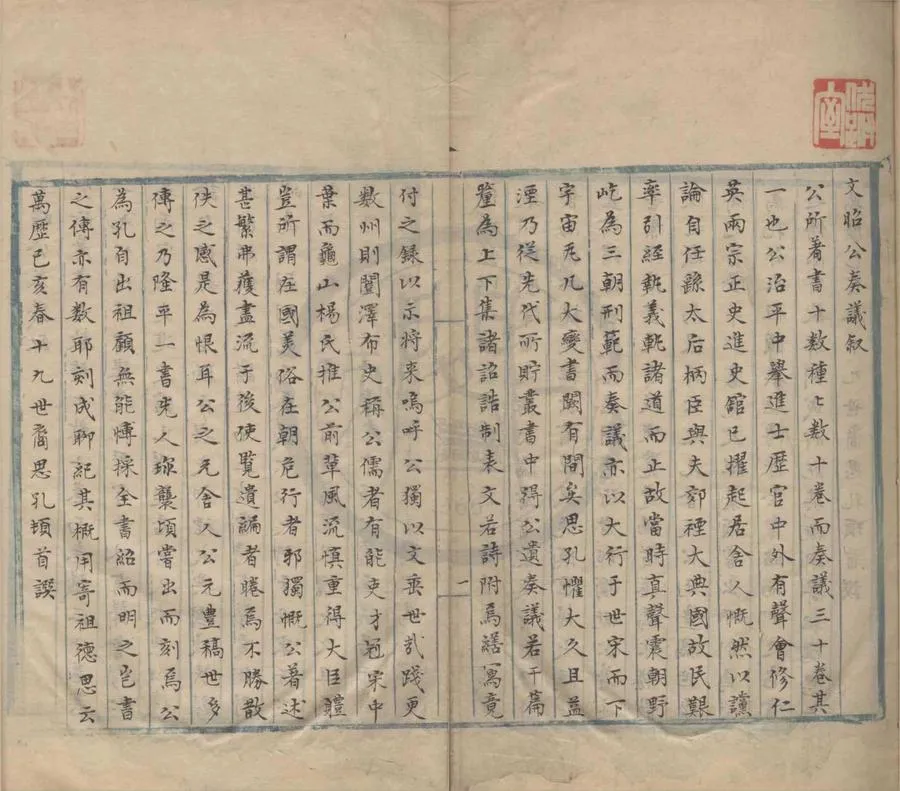 文昭公奏議叙
公所著書十數種〻數十卷而奏議三十卷其
一也公治平中舉進士歷官中外有聲會修仁
英兩宗正史進史館已擢起居舍人慨然以讜
論自任繇太后柄臣與夫郊禋大典國故民艱
率引經執義軌諸道而止故當時直聲震朝野
屹為三朝刑範而奏議亦以大行于世宋而下
宇宙凢几大變書闕有間矣思孔懼大久且益
湮乃從先代所貯叢書中得公遺奏議若干篇
釐為上下集諸詔誥制表文若詩附焉繕寫竟
付之録以示将来嗚呼公獨以文垂世㢤踐更
數州則闓澤布史稱公儒者有能吏才冠宋中
葉而龜山楊氏推公前輩風流慎重得大臣體
豈所謂在國美俗在朝危行者邪獨慨公著述
甚繁弗獲盡流于後使覽遺編者睠焉不勝散
佚之感是為恨耳公之元舍人公元豐稿世多
傳之乃隆平一書先人珎襲頃嘗出而刻焉公
為孔自出祖顧無能愽採全書紹而明之豈書
之傳亦有數耶刻成聊紀其概用寄祖德思云
萬歷己亥春十九世裔思孔頓首譔